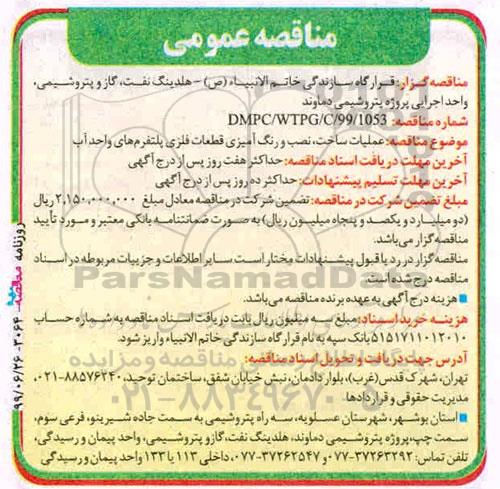 مناقصه عمومی
مناقصه گزار: قرارگاه سازندگی خاتم الانبیاء (ص) - هلدینگ نفت، گاز و پتروشیمی،
واحد اجرایی پروژه پتروشیمی دماوند
شماره مناقصه: DMPC/WTPG/C/99/1053
موضوع مناقصه: عملیات ساخت، نصب و رنگ آمیزی قطعات فلزی پلتفرم‌های واحد آب
آخرین مهلت دریافت اسناد مناقصه: حداکثر هفت روز پس از درج آگهی
آخرین مهلت تسلیم پیشنهادات: حداکثر ده روز پس از درج آگهی
مبلغ تضمین شرکت در مناقصه: تضمین شرکت در مناقصه معادل مبلغ ۲,۱۵۰,۰۰۰,۰۰۰ ریال
(دو میلیارد و یکصد و پنجاه میلیون ریال) به صورت ضمانتنامه بانکی معتبر و مورد تأیید
مناقصه گزار می‌باشد.
مناقصه گزار در رد یا قبول پیشنهادات مختار است سایر اطلاعات و جزییات مربوطه در اسناد
مناقصه درج شده است.
■ هزینه درج آگهی به عهده برنده مناقصه می‌باشد.
هزینه خرید اسناد: مبلغ سه میلیون ریال بابت دریافت اسناد مناقصه به شماره حساب
۵۱۵۱۷۱۱۰۱۲۰۱۰ بانک سپه به نام قرارگاه سازندگی خاتم الانبیاء واریز شود.
آدرس جهت دریافت و تحویل اسناد مناقصه:
تهران، شهرک قدس (غرب)، بلوار دادمان، نبش خیابان شفق، ساختمان توحید، ۸۸۵۷۶۲۴۰-۰۲۱،
مدیریت حقوقی و قراردادها.
■ استان بوشهر، شهرستان عسلویه، سه راه پتروشیمی به سمت جاده شیرینو، فرعی سوم،
سمت چپ، پروژه پتروشیمی دماوند، هلدینگ نفت، گاز و پتروشیمی، واحد پیمان و رسیدگی،
تلفن تماس: ۳۷۲۶۳۲۹۲-۰۷۷ و ۳۷۲۶۲۵۴۷-۰۷۷، داخلی ۱۱۳ یا ۱۳۳ واحد پیمان و رسیدگی
روزنامه مناقصه ۳۰۶۴-۹۹/۰۶/۲۶
ParsNamadData
۰۲۱-۸۸۳۴۹۶۷۰-۵